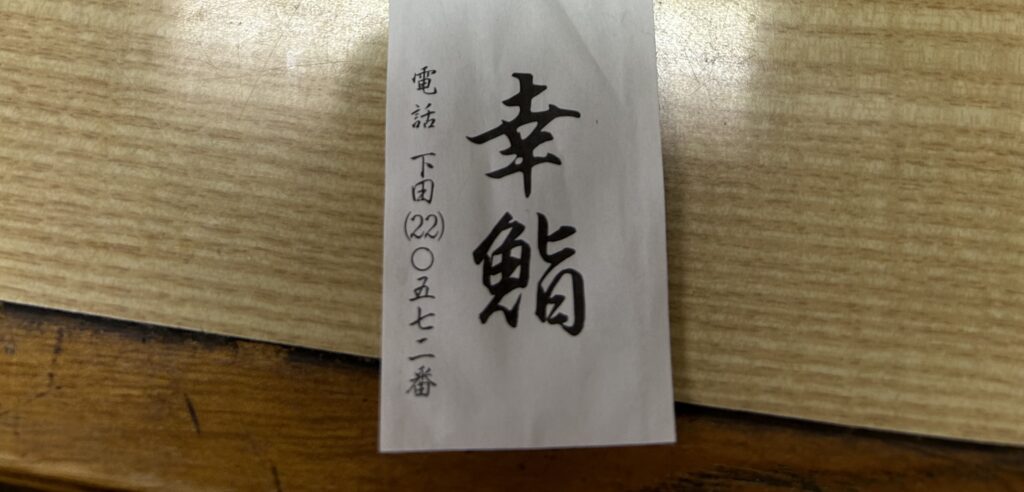 幸鮨
電話 下田(22)〇五七二番